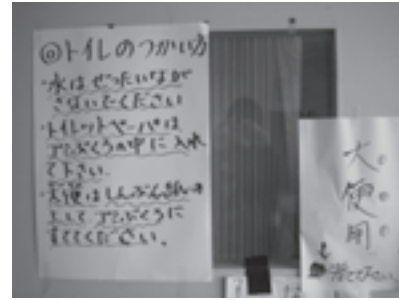 ◎トイレのつかい方
・水はぜったいなが
さないでください
・トイレットペーパは
ゴミぶくろの中に入れ
て下さい。
・大便はしんぶん紙に
して、ゴミぶくろに
すててください。
大。
便。
用。